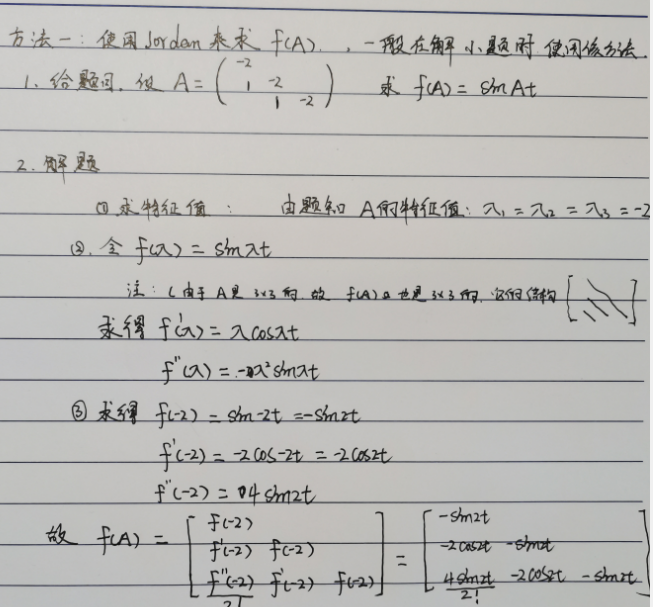 方法一: 使用Jordan来求 f(A). , 一般在解小题时使用该方法.
1. 给题目. 设 A = ( -2
1 -2
1 -2 ) 求 f(A) = sin At
2. 解题
① 求特征值: 由题知 A的特征值: λ₁ = λ₂ = λ₃ = -2
②. 令 f(λ) = sin λt
注: ( 由于A是 3×3 的. 故 f(A) 也是 3×3 的. 它的结构 [ ]
求得 f'(λ) = λ cos λt
f''(λ) = -λ² sin λt
③ 求得 f(-2) = sin -2t = -sin2t
f'(-2) = -2 cos -2t = -2 cos2t
f''(-2) = 4 sin2t
故 f(A) = [ f(-2)
f'(-2) f(-2)
f''(-2)/2! f'(-2) f(-2) ] = [ -sin2t
-2cos2t -sin2t
4sin2t/2! -2cos2t -sin2t ]